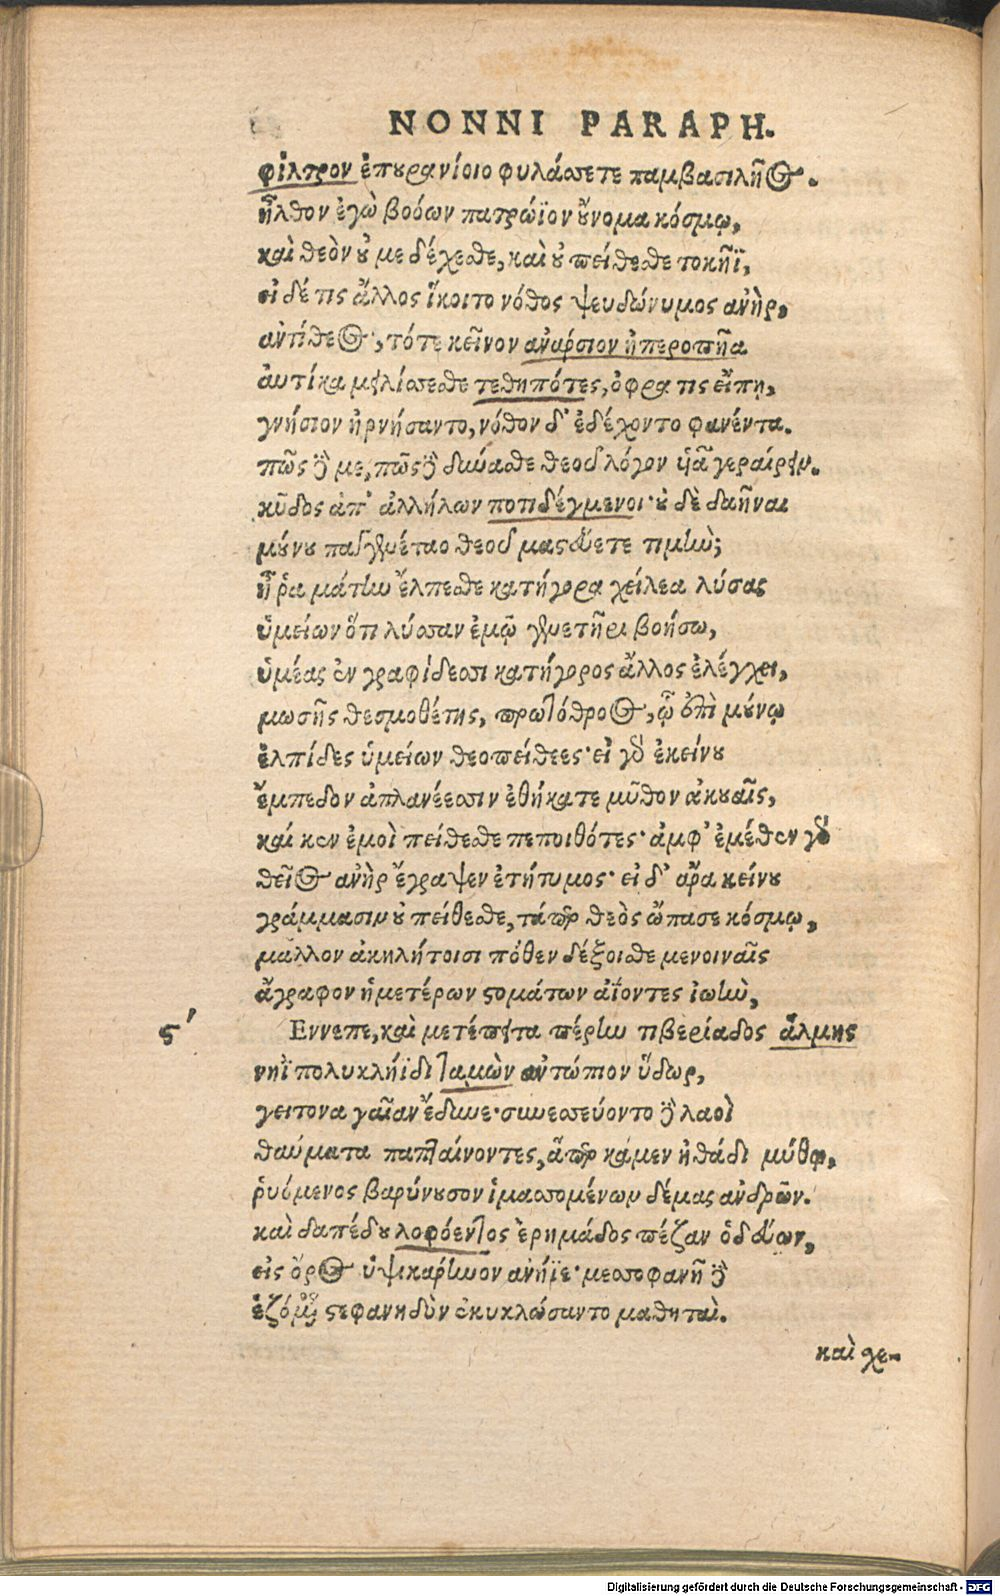 NONNI PARAPH.
φίλτρον ἐπουρανίοιο φυλάσσετε παμβασιλῆος.
ἦλθον ἐγὼ βοόων πατρώϊον οὔνομα κόσμῳ,
καὶ θεὸν οὔ με δέχεσθε, καὶ οὐ πείθεσθε τοκῆϊ,
εἰ δέ τις ἄλλος ἵκοιτο νόθος ψευδώνυμος ἀνὴρ,
ἀντίθεος, τότε κεῖνον ἀνάρσιον ἠπεροπῆα
αὐτίκα μειλίσσεσθε τεθηπότες, ὄφρα τις εἴπῃ,
γνήσιον ἠρνήσαντο, νόθον δ' ἐδέχοντο φανέντα.
πῶς δέ με, πῶς δὲ δύνασθε θεοῦ λόγον υἷα γεραίρειν.
κῦδος ἀπ' ἀλλήλων ποτιδέγμενοι· οὐδὲ δαῆναι
μούνου παγγενέταο θεοῦ μαστεύετε τιμὴν;
ἦ ῥα μάτην ἔλπεσθε κατήγορα χείλεα λύσας
ὑμείων ὅτι λύσσαν ἐμῷ γενετῆρι βοήσω,
ὑμέας ἐν γραφίδεσσι κατήγορος ἄλλος ἐλέγχει,
μωσῆς θεσμοθέτης, πρωτόθροος, ᾧ ἐπὶ μούνῳ
ἐλπίδες ὑμείων θεοπείθεες· εἰ γὰρ ἐκείνου
ἔμπεδον ἀπλανέεσσιν ἐθήκατε μῦθον ἀκουαῖς,
καί κεν ἐμοὶ πείθεσθε πεποιθότες· ἀμφ' ἐμέθεν γὰρ
θεῖος ἀνὴρ ἔγραψεν ἐτήτυμος· εἰ δ' ἄρα κείνου
γράμμασιν οὐ πείθεσθε, τάπερ θεὸς ὤπασε κόσμῳ,
μᾶλλον ἀκηλήτοισι πόθεν δέξοισθε μενοιναῖς
ἄγραφον ἡμετέρων στομάτων ἀΐοντες ἰωὴν,
ϛʹ Εννεπε, καὶ μετέπειτα πέρην τιβεριάδος ἅλμης
νηῒ πολυκλήϊδι ταμὼν ἀντώπιον ὕδωρ,
γείτονα γαῖαν ἔδυνε· συνεσσεύοντο δὲ λαοὶ
θαύματα παπταίνοντες, ἅπερ κάμεν ἠθάδι μύθῳ,
ῥυόμενος βαρύνουσον ἱμασσομένων δέμας ἀνδρῶν.
καὶ δαπέδου λοφόεντος ἐρημάδος πέζαν ὁδεύων,
εἰς ὄρος ὑψικάρηνον ἀνήϊε· μεσσοφανῆ δὲ
ἑζόμενον στεφανηδὸν ἐκυκλώσαντο μαθηταὶ.
καὶ χε-
Digitalisierung gefördert durch die Deutsche Forschungsgemeinschaft - DFG